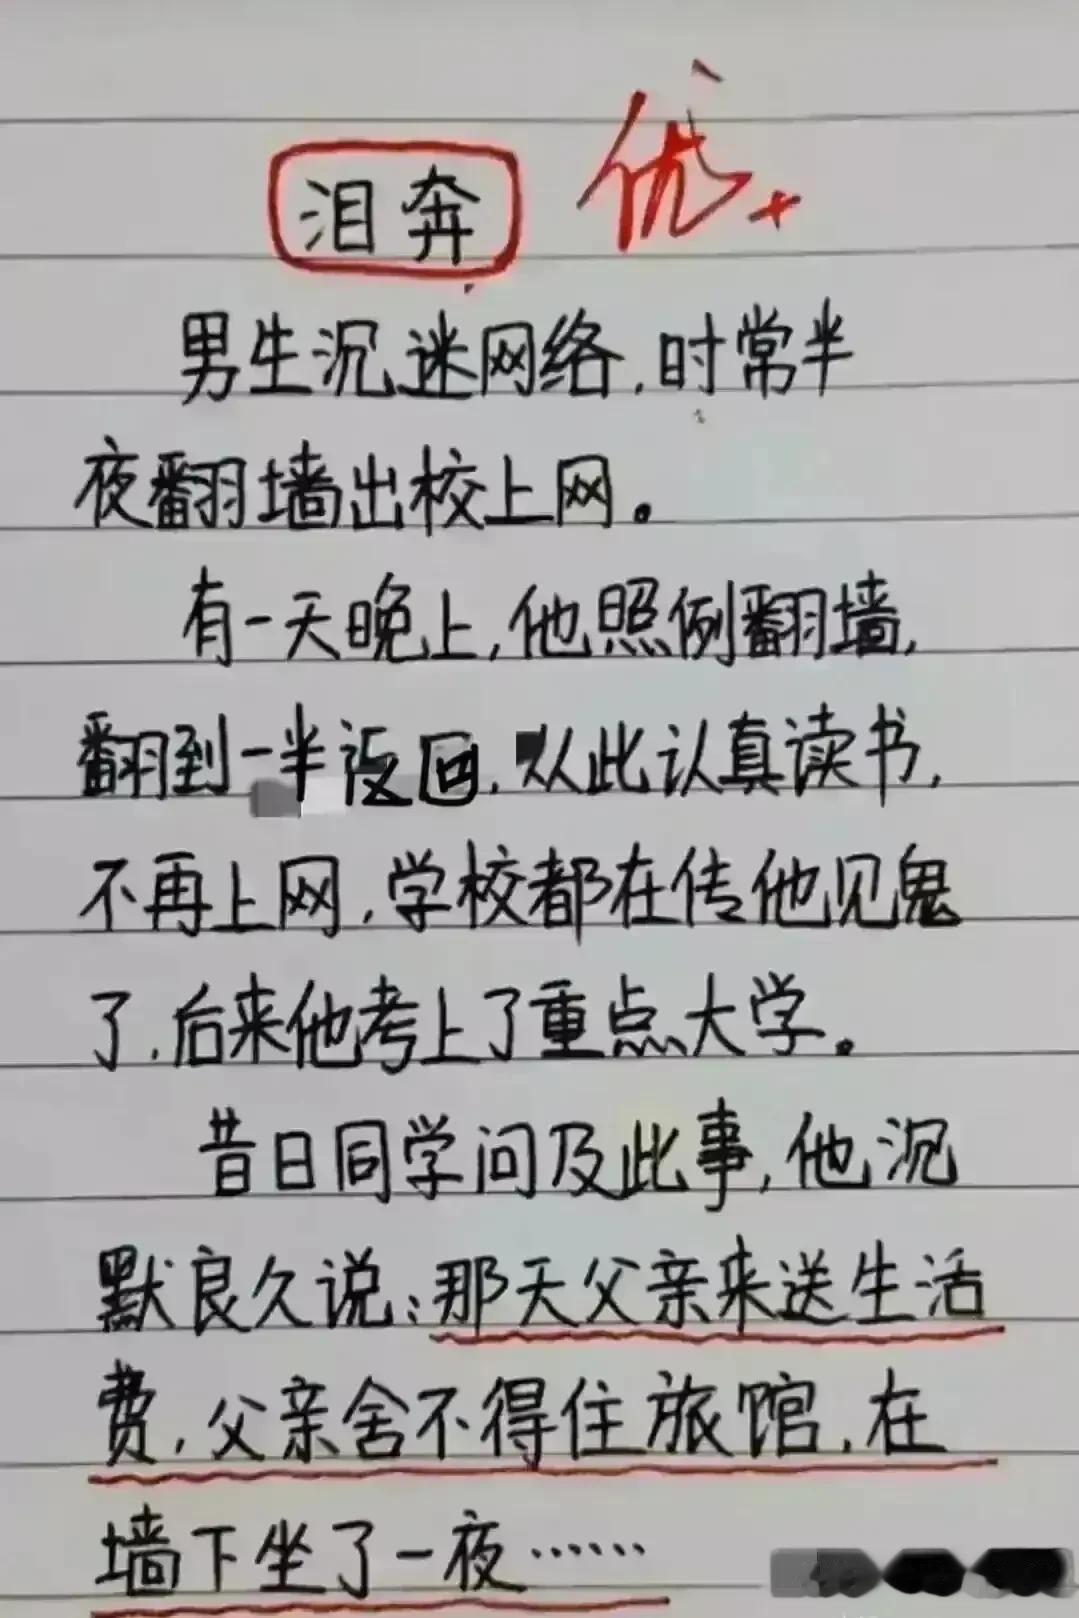 泪奔 优+
男生沉迷网络,时常半
夜翻墙出校上网。
有一天晚上,他照例翻墙,
翻到一半返回,从此认真读书,
不再上网,学校都在传他见鬼
了,后来他考上了重点大学。
昔日同学问及此事,他沉
默良久说:那天父亲来送生活
费,父亲舍不得住旅馆,在
墙下坐了一夜……